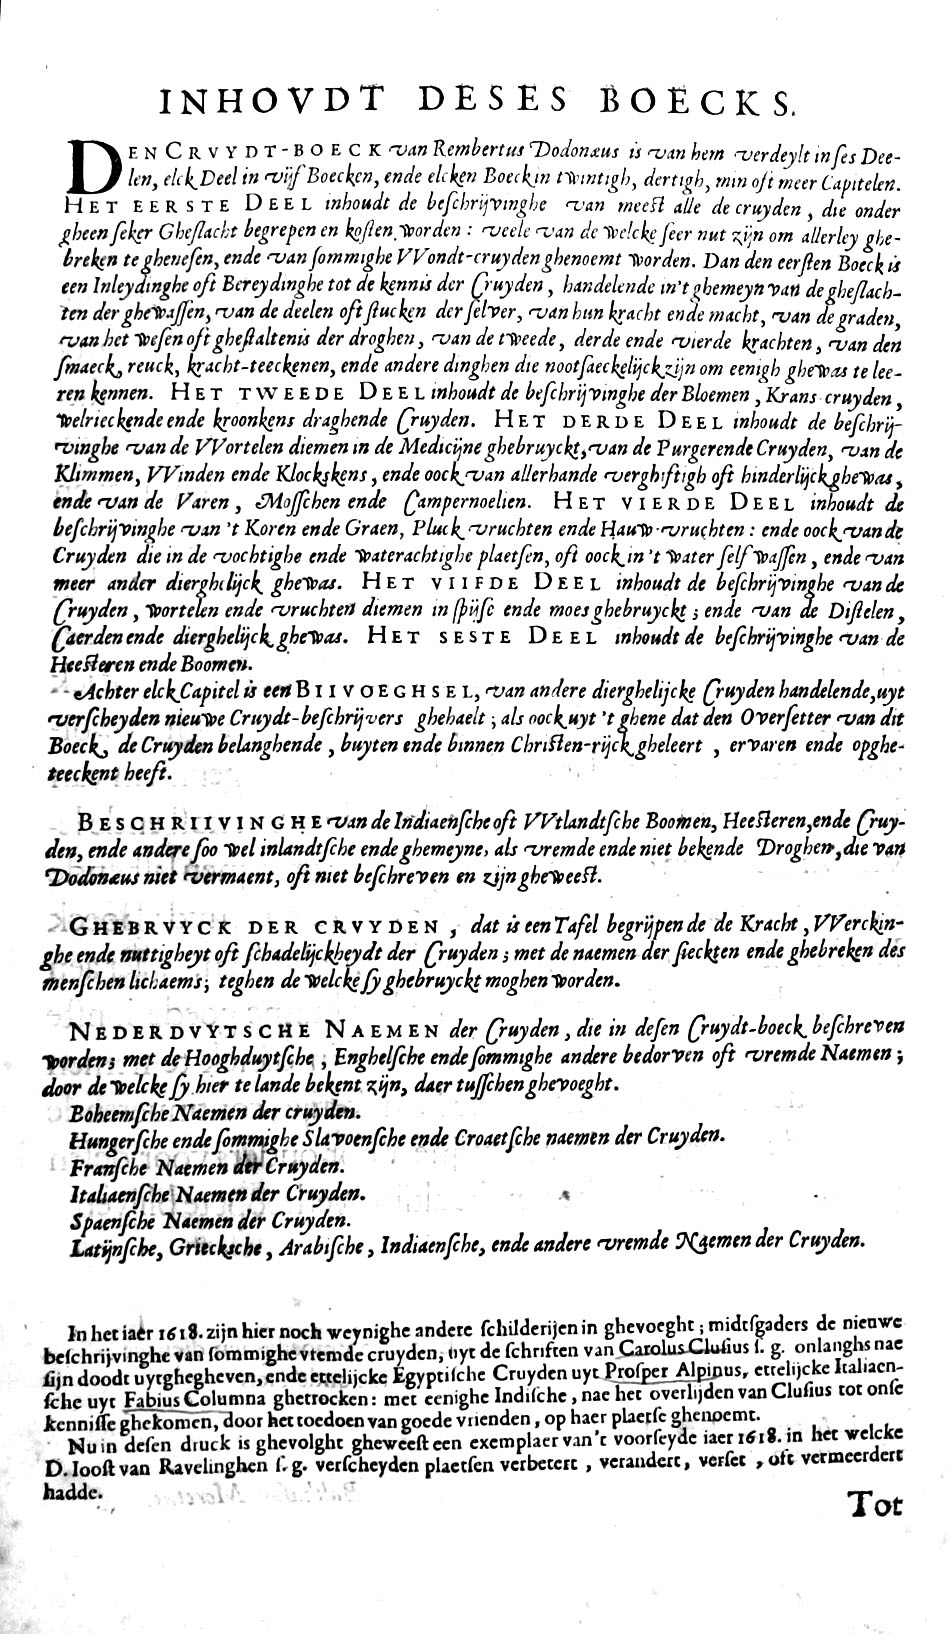 INHOVDT DESES BOECKS.
DEN CRVYDT-BOECK van Rembertus Dodonæus is van hem verdeylt in ses Dee-
len, elck Deel in vijf Boecken, ende elcken Boeck in twintigh, dertigh, min oft meer Capitelen.
HET EERSTE DEEL inhoudt de beſchrijvinghe van meest alle de cruyden, die onder
gheen ſeker Gheſlacht begrepen en koſten worden: veele van de welcke ſeer nut zijn om allerley ghe-
breken te gheneſen, ende van ſommighe VVondt-cruyden ghenoemt worden. Dan den eerſten Boeck is
een Inleydinghe oft Bereydinghe tot de kennis der Cruyden, handelende in't ghemeyn van de gheſlach-
ten der ghewaſſen, van de deelen oft ſtucken der ſelver, van hun kracht ende macht, van de graden,
van het weſen oft gheſtaltenis der droghen, van de tweede, derde ende vierde krachten, van den
ſmaeck, reuck, kracht-teeckenen, ende andere dinghen die nootſaeckelijck zijn om eenigh ghewas te lee-
ren kennen. HET TWEEDE DEEL inhoudt de beſchrijvinghe der Bloemen, Krans-cruyden,
welrieckende ende kroonkens draghende Cruyden. HET DERDE DEEL inhoudt de beſchrij-
vinghe van de VVortelen diemen in de Medicijne ghebruyckt, van de Purgerende Cruyden, van de
Klimmen, VVinden ende Klockskens, ende oock van allerhande verghiftigh oft hinderlijck ghewas,
ende van de Varen, Moſſchen ende Campernoelien. HET VIERDE DEEL inhoudt de
beſchrijvinghe van 't Koren ende Graen, Pluck-vruchten ende Hauw-vruchten: ende oock van de
Cruyden die in de vochtighe ende waterachtighe plaetſen, oft oock in 't water ſelf waſſen, ende van
meer ander dierghelijck ghewas. HET VIIFDE DEEL inhoudt de beſchrijvinghe van de
Cruyden, wortelen ende vruchten diemen in ſpijſe ende moes ghebruyckt; ende van de Diſtelen,
Caerden ende dierghelijck ghewas. HET SESTE DEEL inhoudt de beſchrijvinghe van de
Heeſteren ende Boomen.
Achter elck Capitel is een BIIVOEGHSEL, van andere dierghelijcke Cruyden handelende, uyt
verſcheyden nieuwe Cruydt-beſchrijvers ghehaelt; als oock uyt 't ghene dat den Overſetter van dit
Boeck, de Cruyden belanghende, buyten ende binnen Chriſten-rijck gheleert, ervaren ende opghe-
teeckent heeft.
BESCHRIIVINGHE van de Indiaenſche oft VVtlandtſche Boomen, Heeſteren, ende Cruy-
den, ende andere ſoo wel inlandtſche ende ghemeyne, als vremde ende niet bekende Droghen, die van
Dodonæus niet vermaent, oft niet beſchreven en zijn gheweeſt.
GHEBRVYCK DER CRVYDEN, dat is een Tafel begrijpende de Kracht, VVerckin-
ghe ende nuttigheyt oft ſchadelijckheydt der Cruyden; met de naemen der ſieckten ende ghebreken des
menſchen lichaems; teghen de welcke ſy ghebruyckt moghen worden.
NEDERDVYTSCHE NAEMEN der Cruyden, die in deſen Cruydt-boeck beſchreven
worden; met de Hooghduytſche, Enghelſche ende ſommighe andere bedorven oft vremde Naemen;
door de welcke ſy hier te lande bekent zijn, daer tuſſchen ghevoeght.
Boheemſche Naemen der cruyden.
Hungerſche ende ſommighe Slavoenſche ende Croaetſche naemen der Cruyden.
Franſche Naemen der Cruyden.
Italiaenſche Naemen der Cruyden.
Spaenſche Naemen der Cruyden.
Latijnſche, Griecksche, Arabiſche, Indiaenſche, ende andere vremde Naemen der Cruyden.
In het iaer 1618. zijn hier noch weynighe andere ſchilderijen in ghevoeght; midtſgaders de nieuwe
beſchrijvinghe van ſommighe vremde cruyden, uyt de ſchriften van Carolus Cluſius ſ. g. onlanghs nae
ſijn doodt uytghegheven, ende ettelijcke Egyptiſche Cruyden uyt Proſper Alpinus, ettelijcke Italiaen-
ſche uyt Fabius Columna ghetrocken: met eenighe Indiſche, nae het overlijden van Cluſius tot onſe
kenniſſe ghekomen, door het toedoen van goede vrienden, op haer plaetſe ghenoemt.
Nu in deſen druck is ghevolght gheweeſt een exemplaer van't voorſeyde iaer 1618. in het welcke
D. Iooſt van Ravelinghen ſ. g. verſcheyden plaetſen verbetert, verandert, verſet, oft vermeerdert
hadde.
Tot